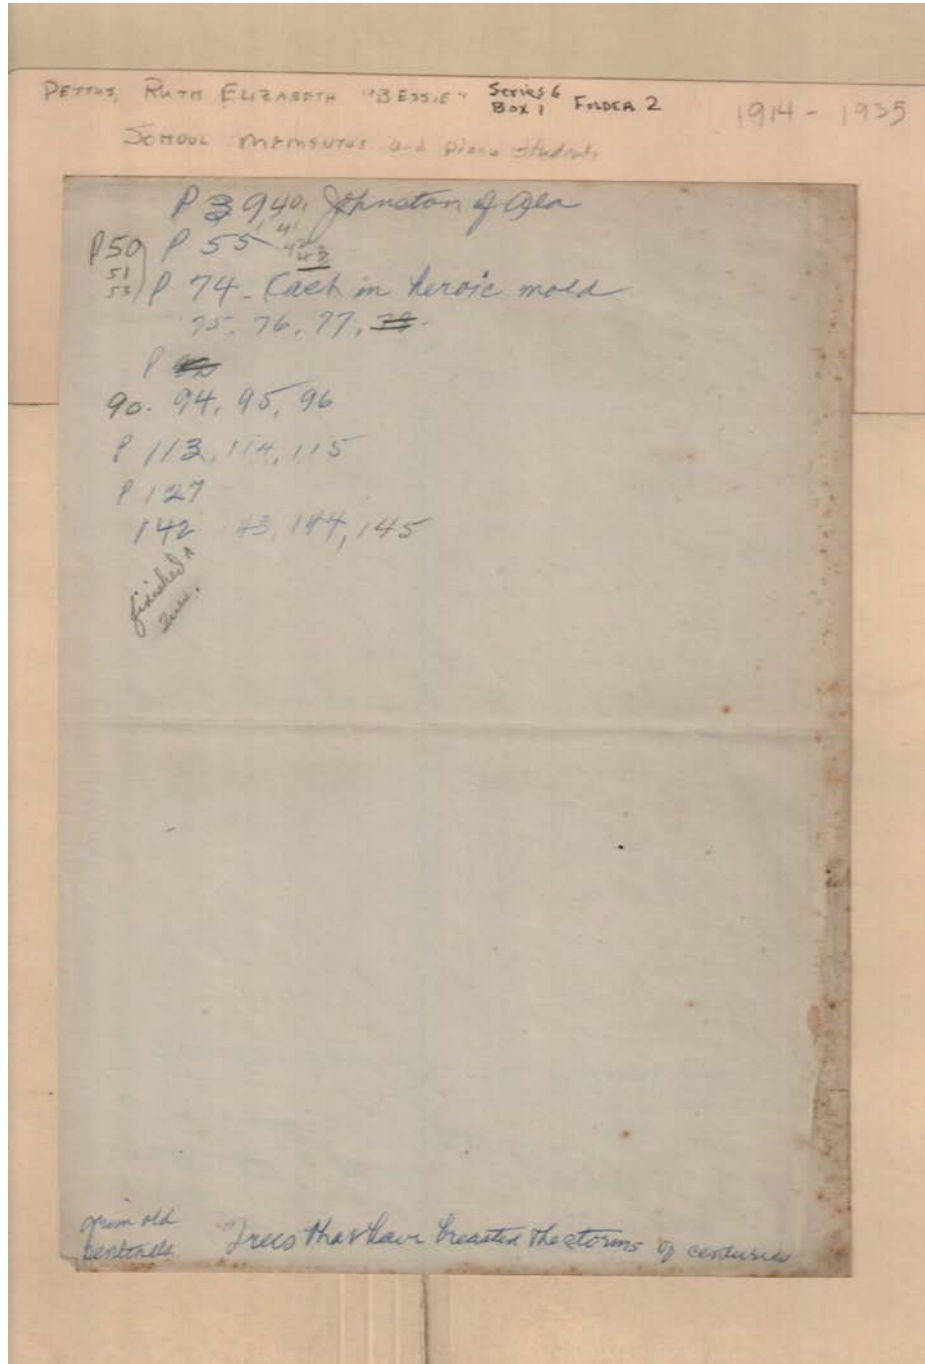 PETTUS, RUTH ELIZABETH "BESSIE" Series 6 Box 1 FOLDER 2 1914 - 1935
SCHOOL MEMENTOS and piano students
P 39, 40, Johnston of Ala
41
P 50 P 55 42
51 43
53 P 74 - Cast in heroic mold
75, 76, 77,
P
90. 94, 95, 96
P 113, 114, 115
P 127
142 143, 144, 145
finished
grim old
sentinels
Trees that have breasted the storms of centuries